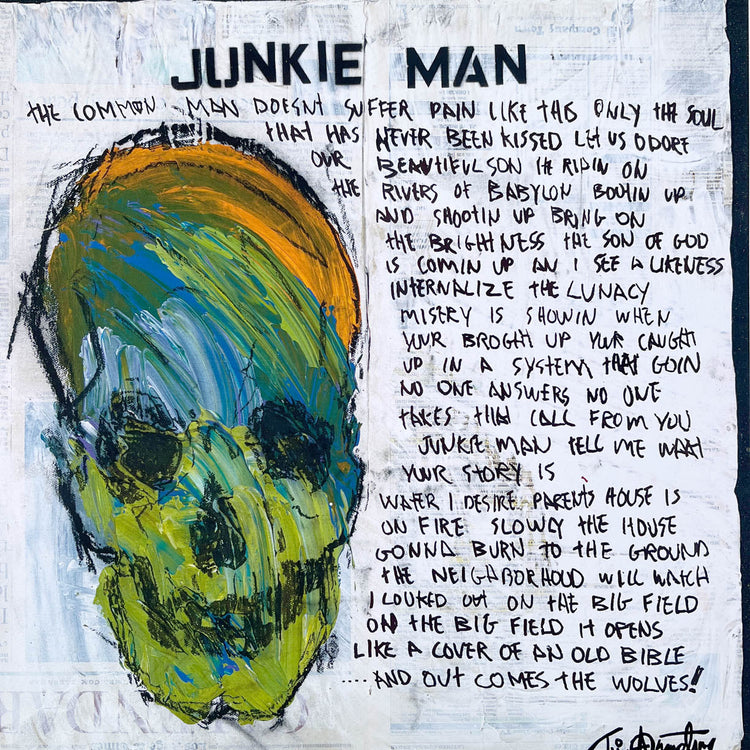 JUNKIE MAN
THE COMMON MAN DOESNT SUFFER PAIN LIKE THIS ONLY THE SOUL
THAT HAS NEVER BEEN KISSED LET US ODORE
OUR BEAUTIFUL SON HE RIDIN ON
THE RIVERS OF BABYLON BOOTIN UP
AND SHOOTIN UP BRING ON
THE BRIGHTNESS THE SON OF GOD
IS COMIN UP AN I SEE A LIKENESS
INTERNALIZE THE LUNACY
MISERY IS SHOWIN WHEN
YOUR BROGHT UP YOUR CAUGHT
UP IN A SYSTEM THAT GOIN
NO ONE ANSWERS NO ONE
TAKES THAT CALL FROM YOU
JUNKIE MAN TELL ME WHAT
YOUR STORY IS
WATER I DESIRE PARENTS HOUSE IS
ON FIRE SLOWLY THE HOUSE
GONNA BURN TO THE GROUND
THE NEIGHBORHOOD WILL WATCH
I LOOKED OUT ON THE BIG FIELD
ON THE BIG FIELD IT OPENS
LIKE A COVER OF AN OLD BIBLE
....AND OUT COMES THE WOLVES!!